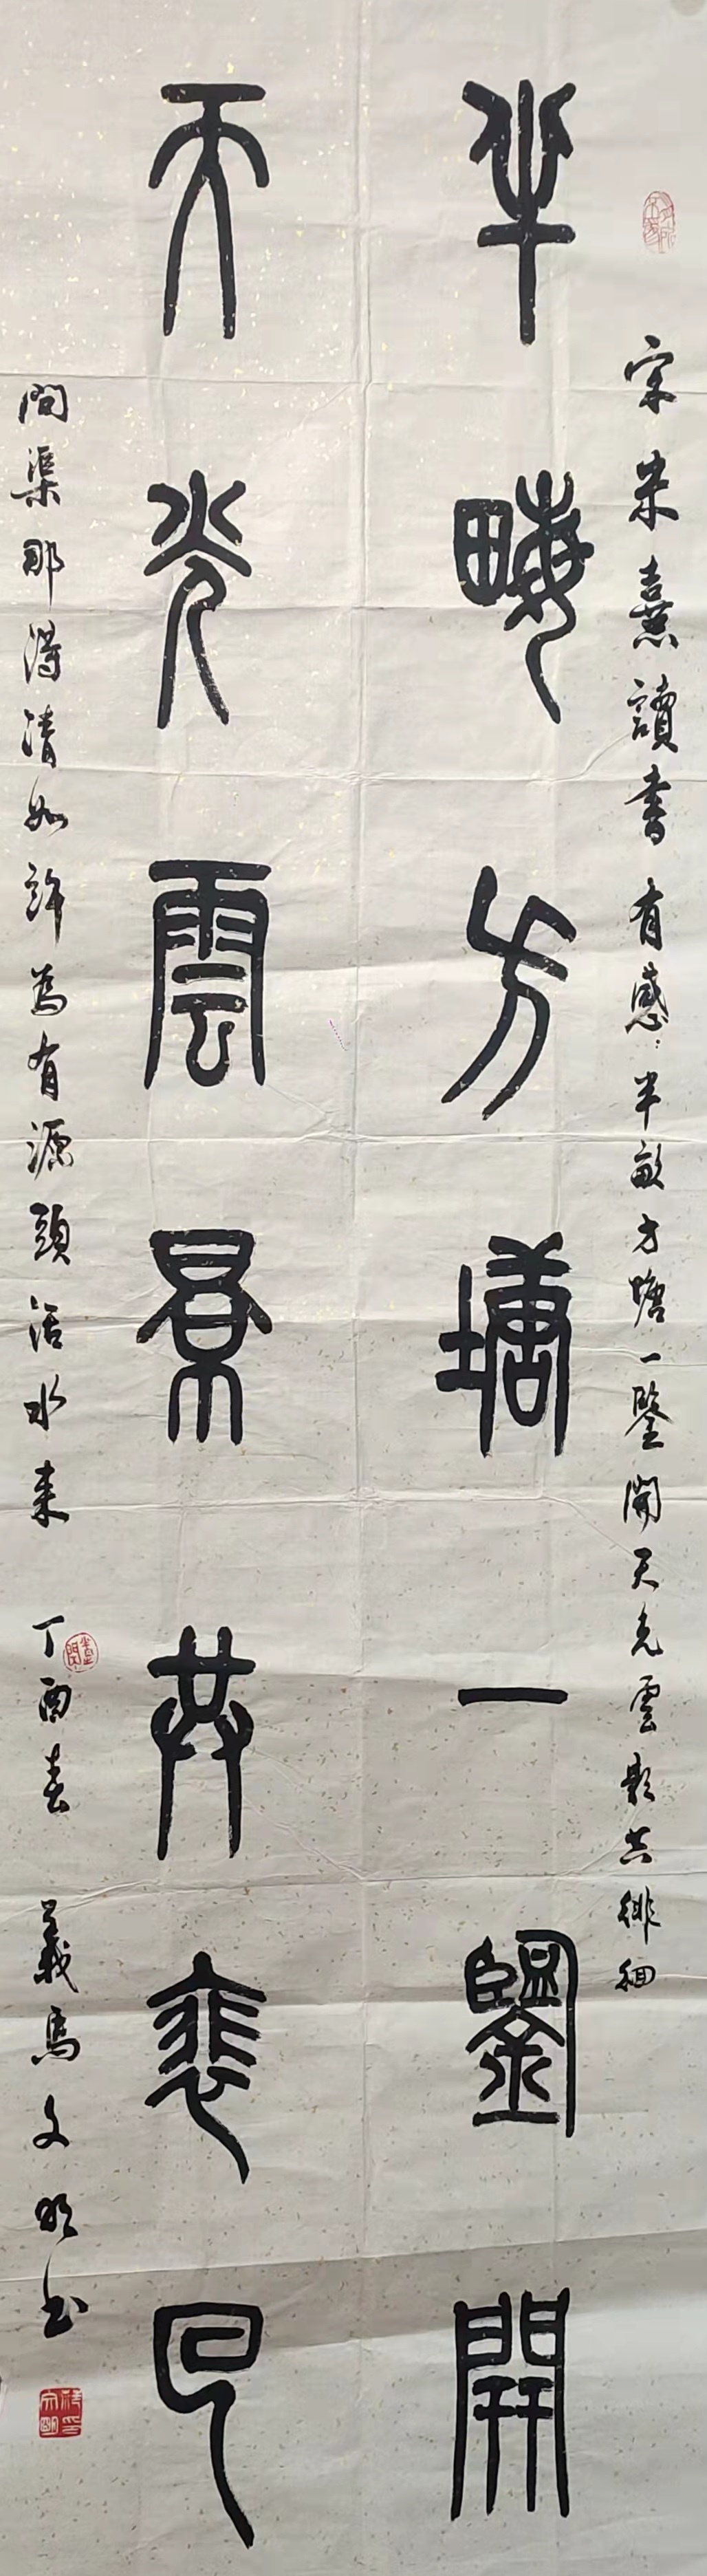 宋朱熹讀書有感：半畝方塘一鑒開天光雲影共徘徊
半畮方塘一鑒開
天光雲景共裴回
問渠那得清如許為有源頭活水來 丁酉春 義馬文明書